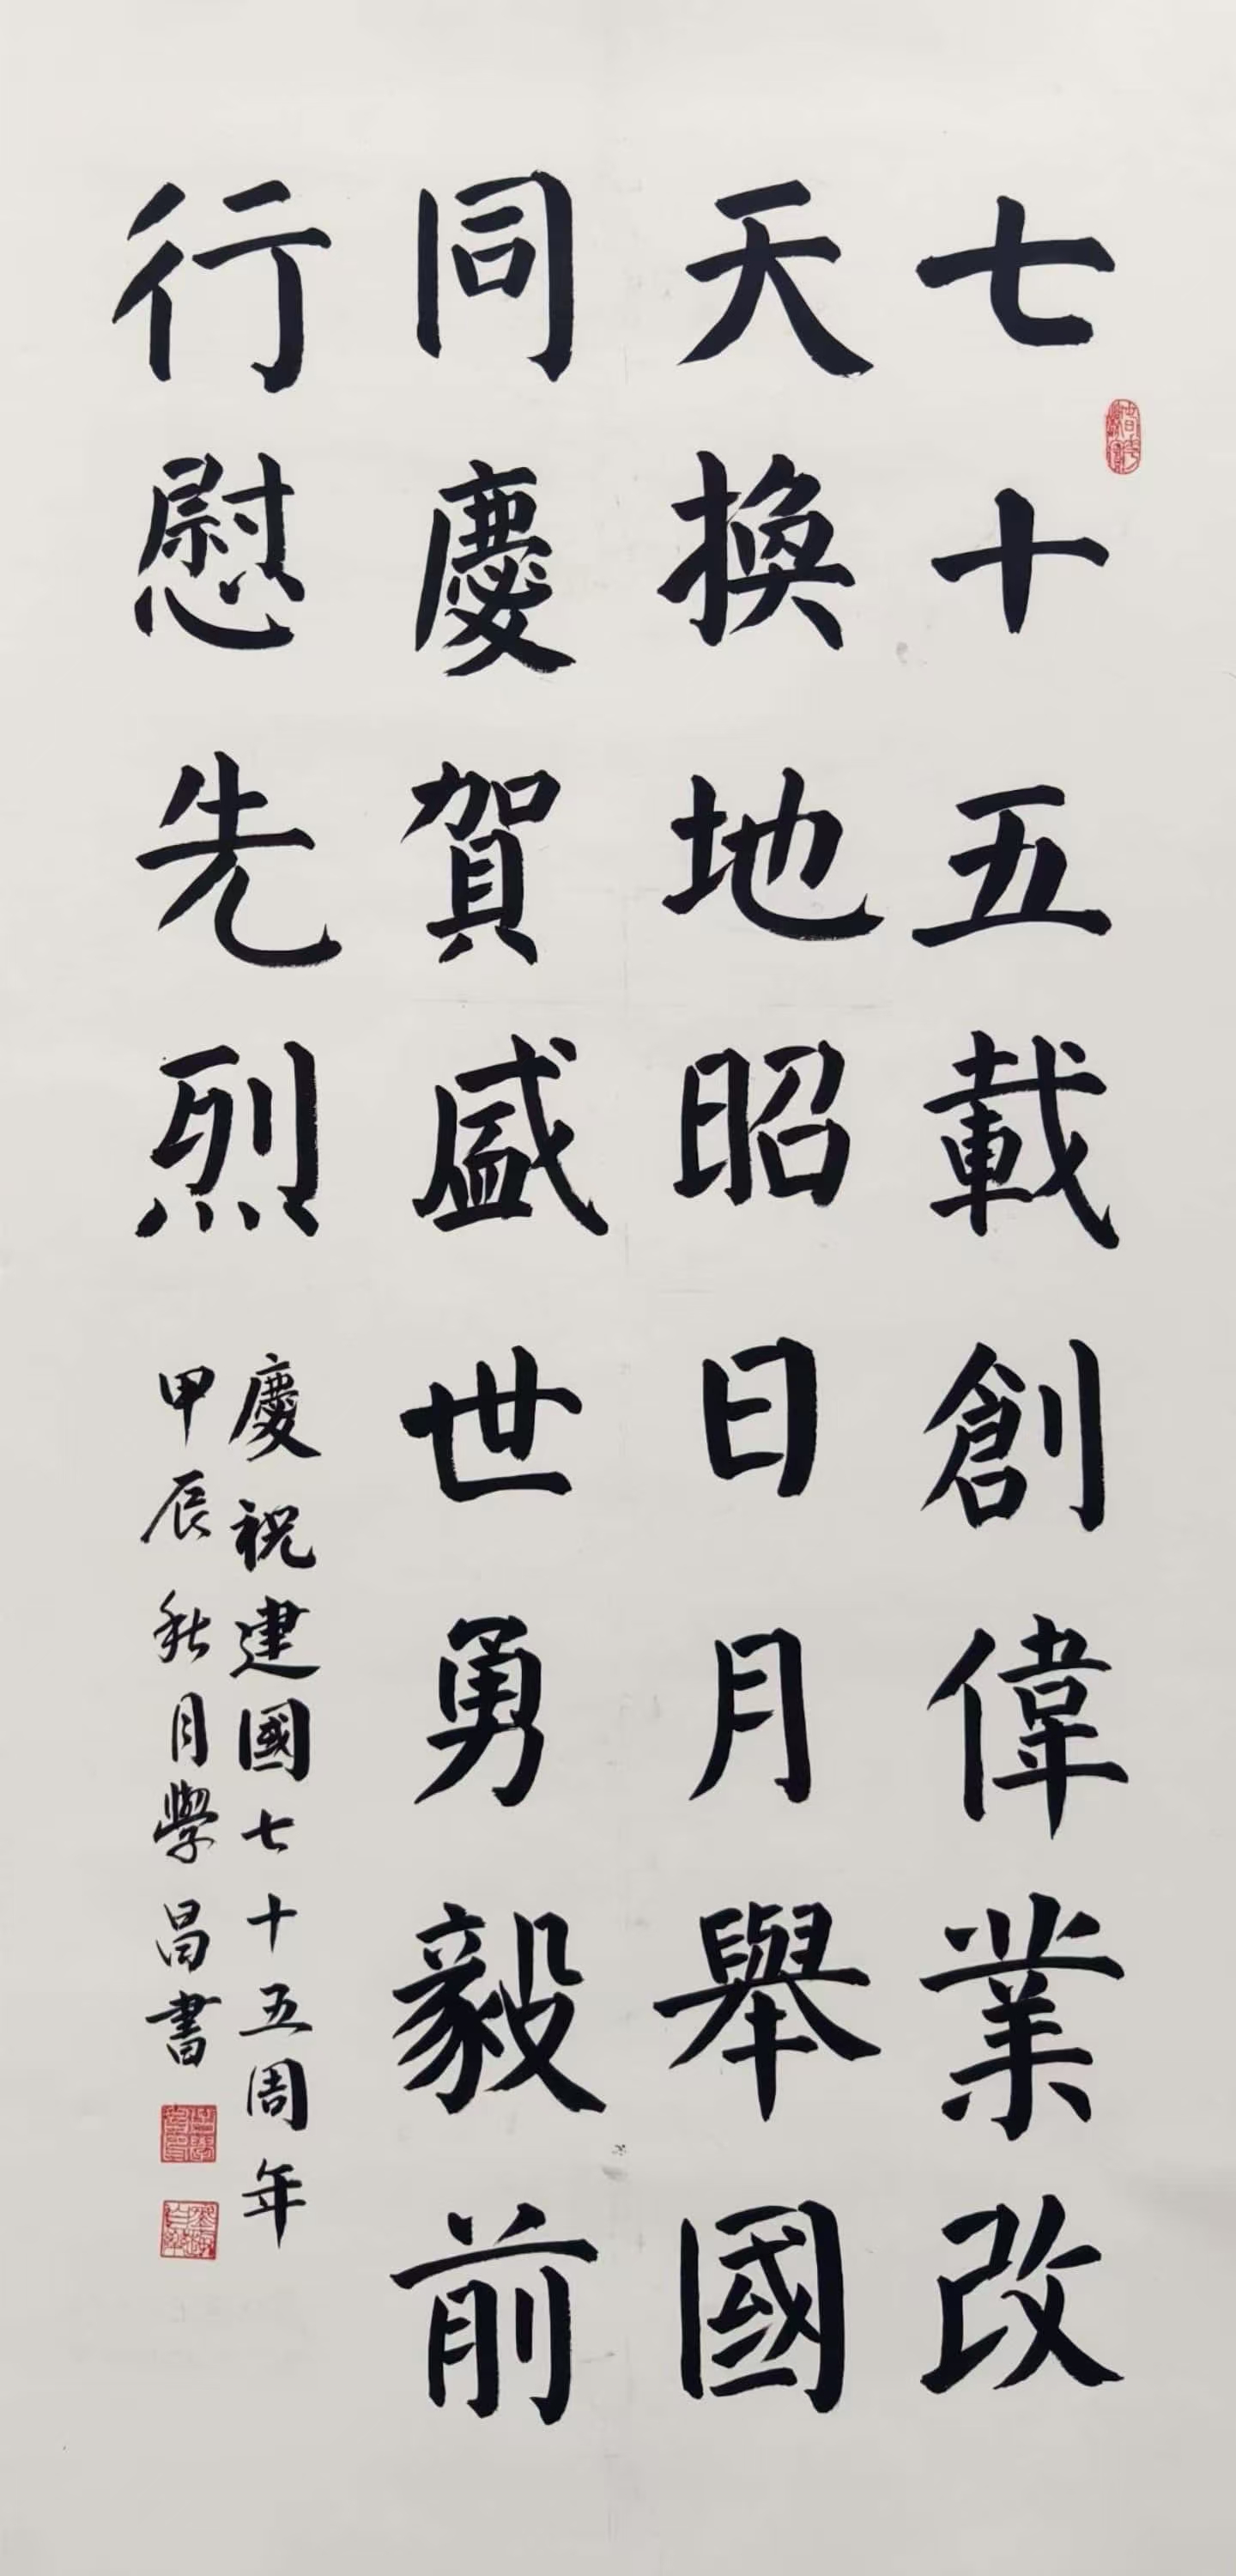 七十五載創偉業改
天換地昭日月舉國
同慶賀盛世勇毅前
行慰先烈
慶祝建國七十五周年
甲辰秋月學昌書